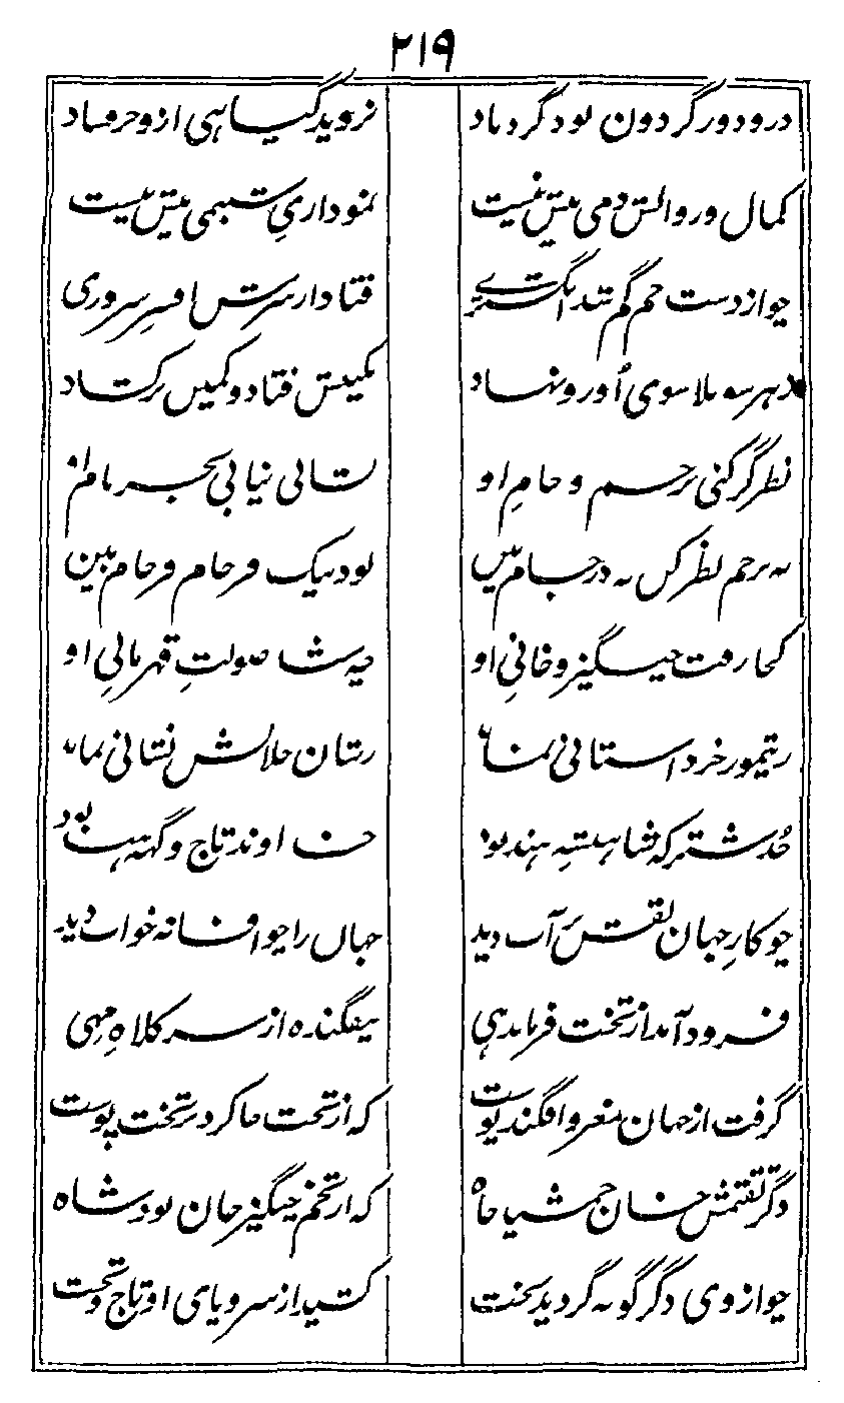 ۲۱۹
درو دور گردون بود گرد باد نروید گیاهی ازو جز فساد
کمال و زوالش دمی بیش نیست نموداری شبنمی بیش نیست
چو از دست جم گم شد انگشتری فتاد از سرش افسر سروری
ز هر سه بلا سوی او رو نهاد نگینش فتاد و کمین برکشاد
نظر گر کنی بر جم و جام او نشانی نیابی بجز نام او
نه بر جم نظر کن نه در جام بین بود نیک فرجام فرجام بین
کجا رفت چنگیز و خانی او چه شد صولت قهرمانی او
ز تیمور خر داستانی نماند ز شان جلالش نشانی نماند
خدشتر که شاهنشه هند بود خداوند تاج و گهند بود
چو کار جهان نقش بر آب دید جهان را چو افسانه خواب دید
فرود آمد از تخت فرماندهی بیفگنده از سر کلاه مهی
گرفت از جهان مغز و افگند پوست که از تخت جا کرد بر تخت پوست
دگر تقتمش خان جمشید جاه که از تخم چنگیز خان بود شاه
چو از وی دگرگونه گردید بخت کشید از سر و پای او تاج و تخت